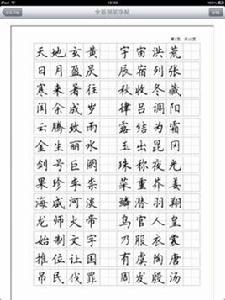 天地玄黄 宇宙洪荒
日月盈昃 辰宿列张
寒来暑往 秋收冬藏
闰余成岁 律吕调阳
云腾致雨 露结为霜
金生丽水 玉出昆冈
剑号巨阙 珠称夜光
果珍李柰 菜重芥姜
海咸河淡 鳞潜羽翔
龙师火帝 鸟官人皇
始制文字 乃服衣裳
推位让国 有虞陶唐
吊民伐罪 周发殷汤